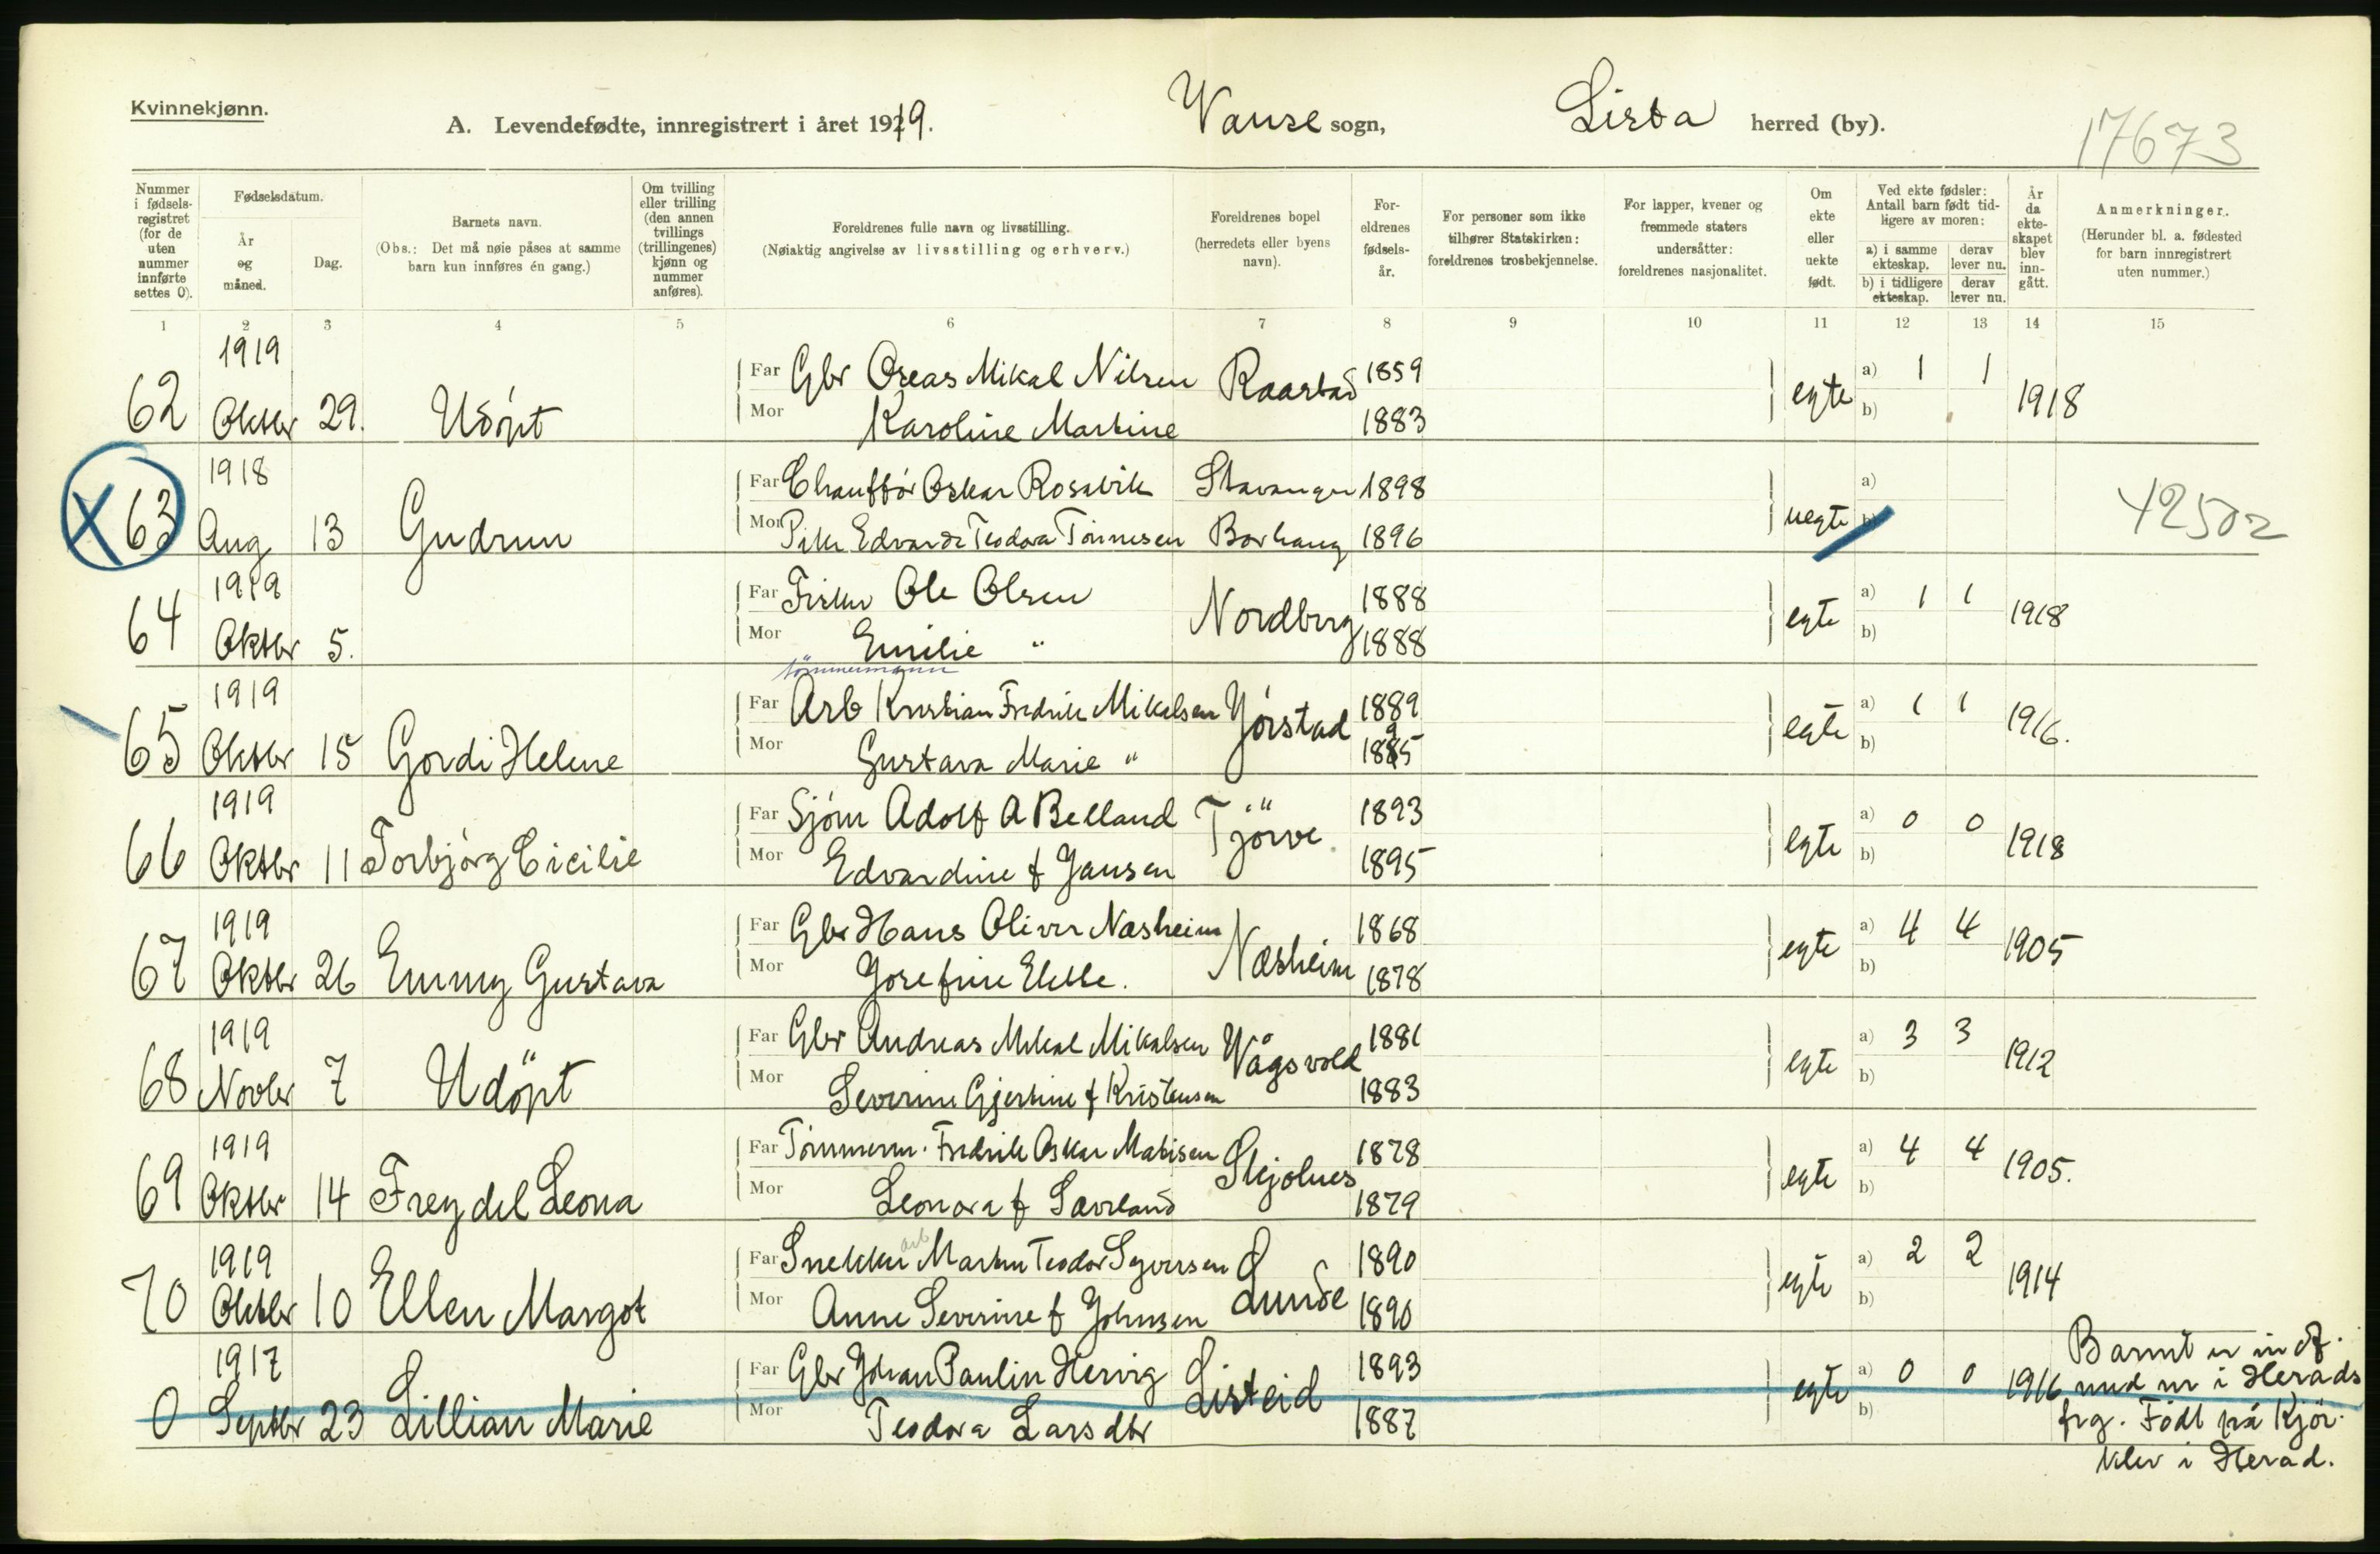 Kvinnekjønn.
A. Levendefødte, innregistrert i året 1919. Vanse sogn, Lista herred (by). 17673
Nummer i fødsels-registret (for de uten nummer innførte settes 0).
Fødselsdatum.
År og måned.
Dag.
Barnets navn.
(Obs.: Det må nøie påses at samme barn kun innføres én gang.)
Om tvilling eller trilling (den annen tvillings (trillingenes) kjønn og nummer anføres).
Foreldrenes fulle navn og livsstilling.
(Nøiaktig angivelse av livsstilling og erhverv.)
Foreldrenes bopel (herredets eller byens navn).
For-eldrenes fødsels-år.
For personer som ikke tilhører Statskirken: foreldrenes trosbekjennelse.
For lapper, kvener og fremmede staters undersåtter: foreldrenes nasjonalitet.
Om ekte eller uekte født.
Ved ekte fødsler: Antall barn født tid-ligere av moren:
a) i samme ekteskap. derav lever nu.
b) i tidligere ekteskap. derav lever nu.
År da ekte-skapet blev inn-gått.
Anmerkninger.
(Herunder bl. a. fødested for barn innregistrert uten nummer.)
1 2 3 4 5 6 7 8 9 10 11 12 13 14 15
1919
Far Gbr Oreas Mikal Nilsen Raastad 1859 a) 1 1
62 Oktbr 29. Udöpt egte 1918
Mor Karoline Martine 1883 b)
1918
Far Chaufför Oskar Rosavik Stavanger 1898 a)
63 Aug 13 Gudrun uegte 42502
Mor Pike Edvarda Teodora Tönnesen Borhaug 1896 b)
1919
Far Fisker Ole Olsen 1888 a) 1 1
64 Oktbr 5. Nordberg egte 1918
Mor Emilie " 1888 b)
tömmermann
1919
Far Arb Kristian Fredrik Mikalsen Jörstad 1889 a) 1 1
65 Oktbr 15 Gordi Helene egte 1916.
Mor Gustava Marie " 1895 b)
1919
Far Sjöm Adolf A Belland Tjörve 1893 a) 0 0
66 Oktbr 11 Torbjörg Cicilie egte 1918
Mor Edvardine f Jansen 1895 b)
1919
Far Gbr Hans Oliver Næsheim 1868 a) 4 4
67 Oktbr 26 Emmy Gustava Næsheim egte 1905
Mor Josefine Elelle. 1878 b)
1919
Far Gbr Andreas Mikal Mikalsen Vågsvold 1881 a) 3 3
68 Novbr 7 Udöpt egte 1912
Mor Severine Gjertine f Kristensen 1883 b)
1919
Far Tömmerm. Fredrik Oskar Matisen Skjolnes 1878 a) 4 4
69 Oktbr 14 Freydel Leona egte 1905.
Mor Leonora f Sævland 1879 b)
1919
arb
Far Snekker Martin Teodor Syversen Lunde 1890 a) 2 2
70 Oktbr 10 Ellen Margot egte 1914
Mor Anne Severine f Johnsen 1890 b)
1917
Far Gbr Johan Paulin Hervig Listeid 1893 a) 0 0
0 Septbr 23 Lillian Marie egte 1916
Mor Teodora Larsdtr 1887 b)
Barnet er indf.
med nr i Herads
frg. Född på Kjör-
klev i Herad.